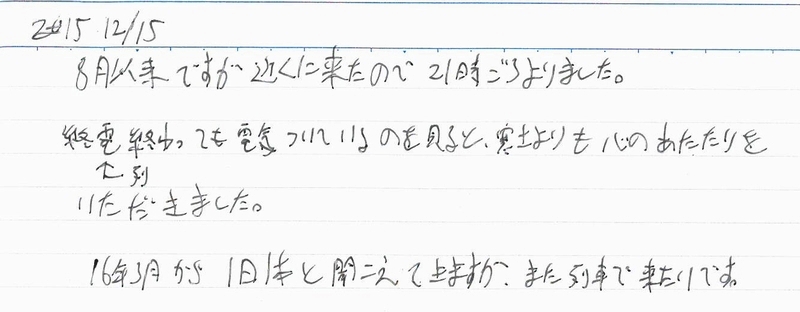 2015 12/15
8月以来ですが近くに来たので21時ごろよりました。
終電終わっても電気ついているのを見ると、寒さよりも心のあたたりを
列
いただきました。
16年3月から1日1本と聞こえて止ますが、また列車で来たいです。